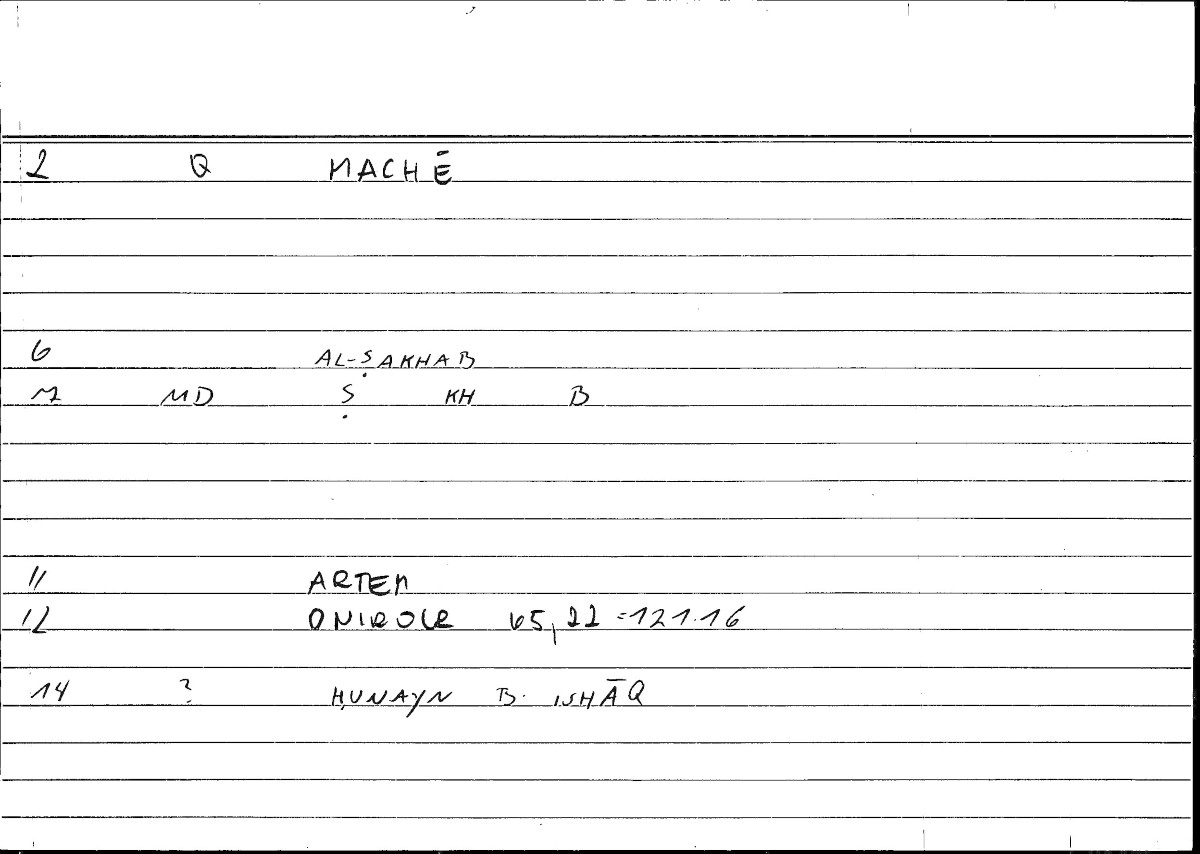 2 Q MACHĒ
6 AL-ṢAKHAB
7 MD Ṣ KH B
11 ARTEM
12 ONIROCR 65,22=121.16
14 ? ḤUNAYN B. ISHĀQ